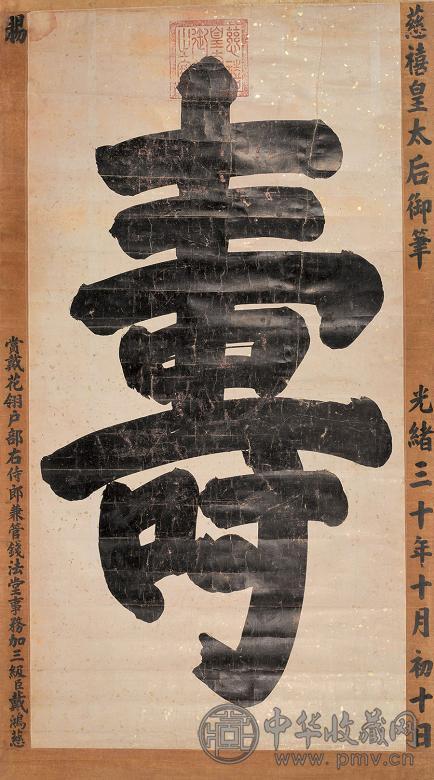 慈禧皇太后御筆
光緒三十年十月初十日
壽
賜
賞戴花翎户部右侍郎兼管錢法堂事務加三級臣戴鴻慈
中华收藏网
www.pmv.cn